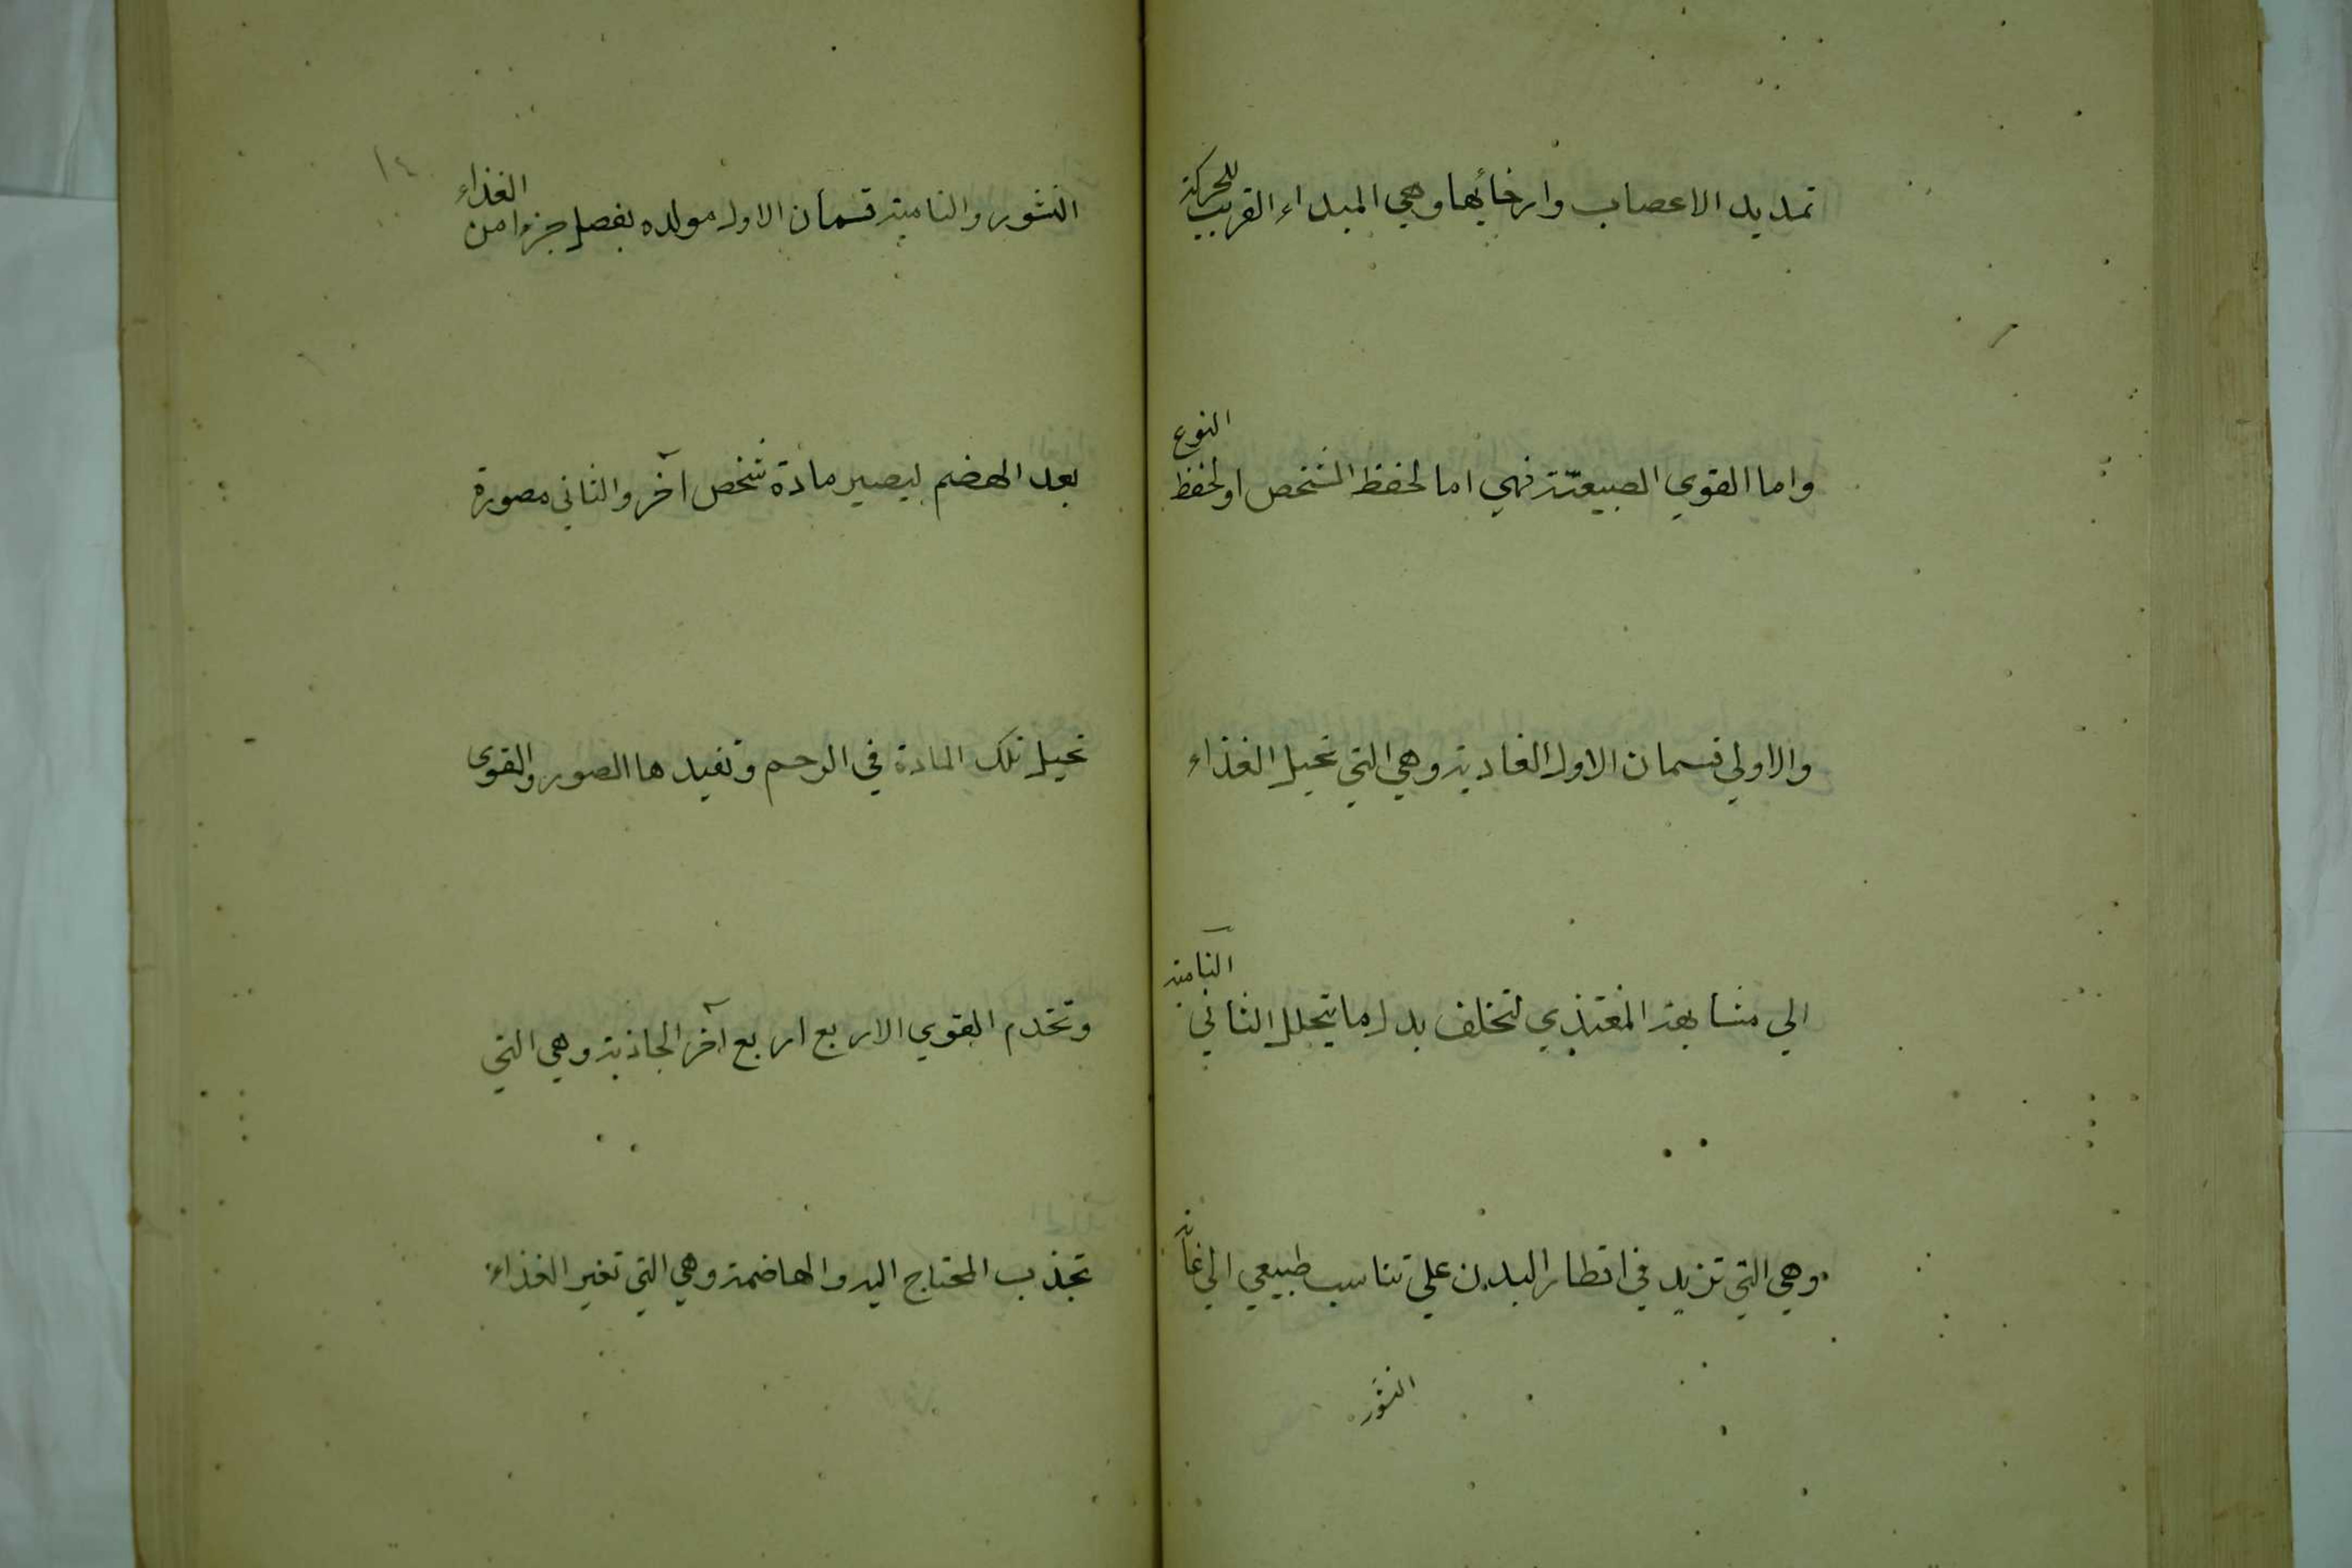 تمديد الاعصاب وارخائها وهي المبداء القريب للحركة
واما القوي الطبيعية فهي اما لحفظ الشخص او لحفظ النوع
والاولي قسمان الاول الغاذية وهي التي تحيل الغذاء
الي مشابهة المغتذي لتخلف بدل ما يتحلل الثاني النامية
وهي التي تزيد في اقطار البدن علي تناسب طبيعي الي غاية
النشور
١٤
النشور والنامية قسمان الاول مولده يفصل جزءا من الغذاء
بعد الهضم ليصير مادة شخص آخر والثاني مصورة
تحيل تلك المادة في الرحم وتفيدها الصور والقوى
وتخدم القوي الاربع اربع آخر الجاذبة وهي التي
تجذب المحتاج اليه والهاضمة وهي التي تغير الغذاء